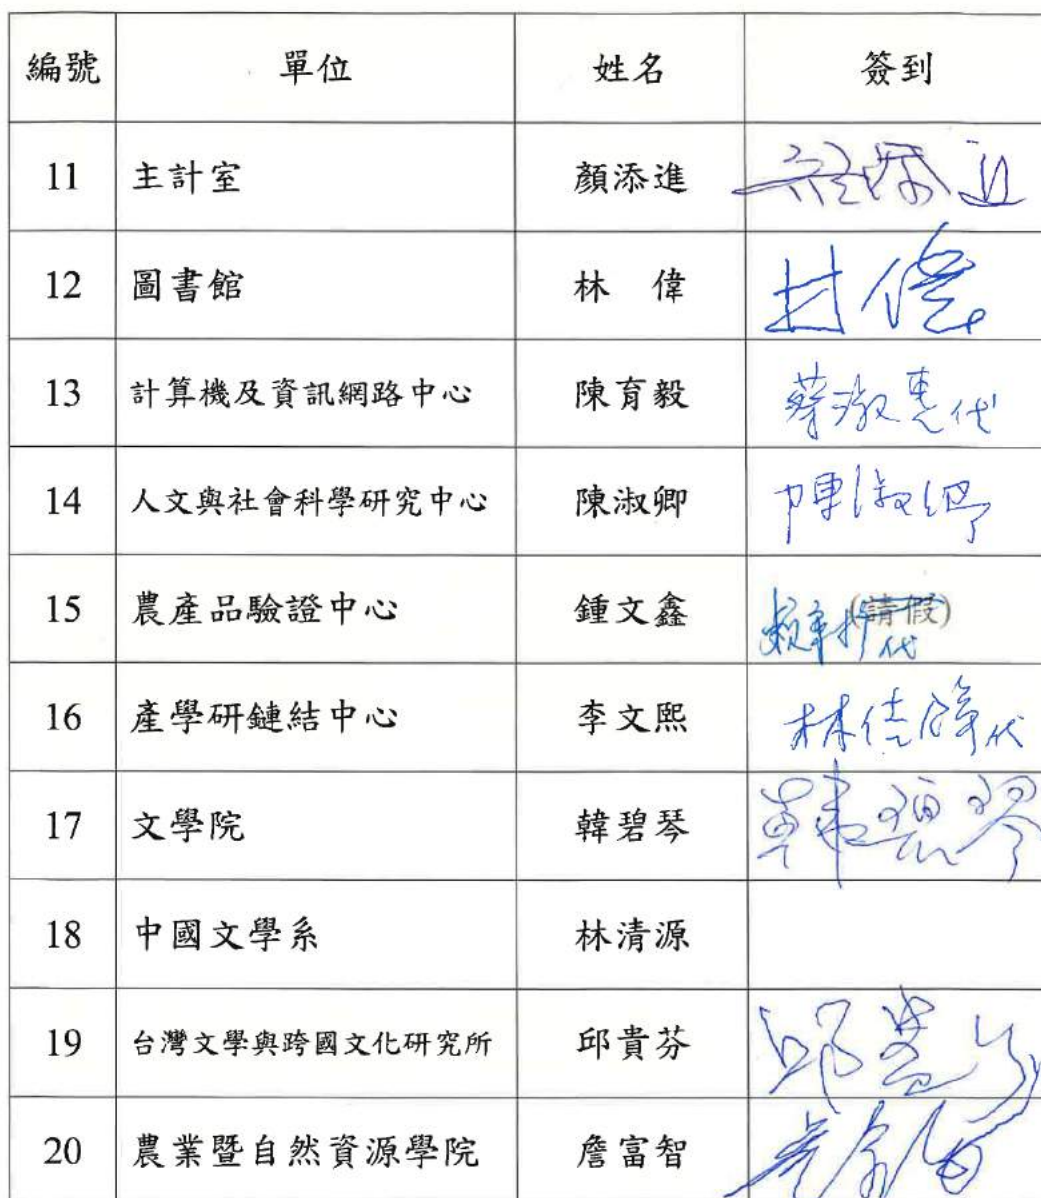 編號 單位 姓名 簽到
11 主計室 顏添進 顏添進
12 圖書館 林 偉 林偉
13 計算機及資訊網路中心 陳育毅 蔡淑惠代
14 人文與社會科學研究中心 陳淑卿 陳淑卿
15 農產品驗證中心 鍾文鑫 (請假) 代
16 產學研鏈結中心 李文熙 林佳鋒代
17 文學院 韓碧琴 韓碧琴
18 中國文學系 林清源
19 台灣文學與跨國文化研究所 邱貴芬 邱貴芬
20 農業暨自然資源學院 詹富智 詹富智